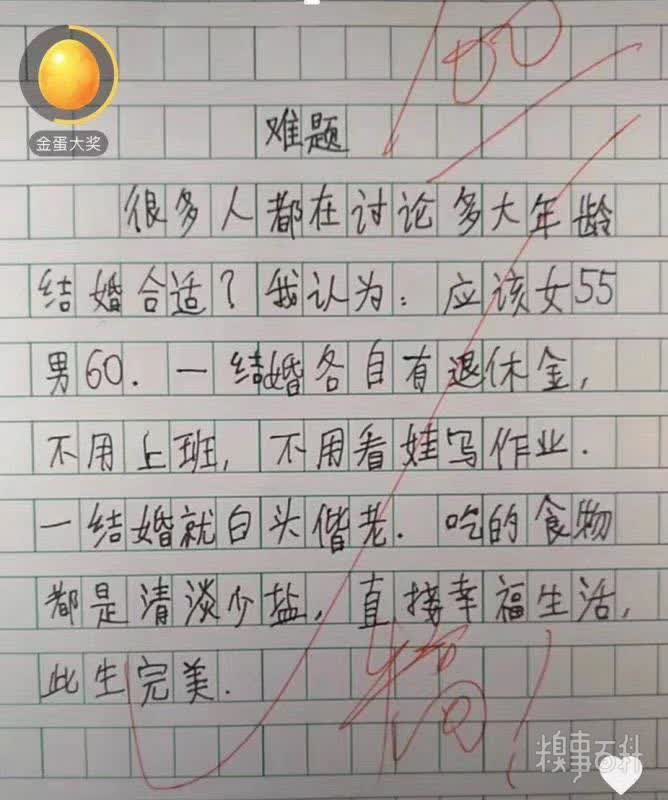 100
金蛋大奖
难题
很多人都在讨论多大年龄
结婚合适？我认为：应该女55
男60．一结婚各自有退休金，
不用上班，不用看娃写作业．
一结婚就白头偕老．吃的食物
都是清淡少盐，直接幸福生活，
此生完美．
糗事百科